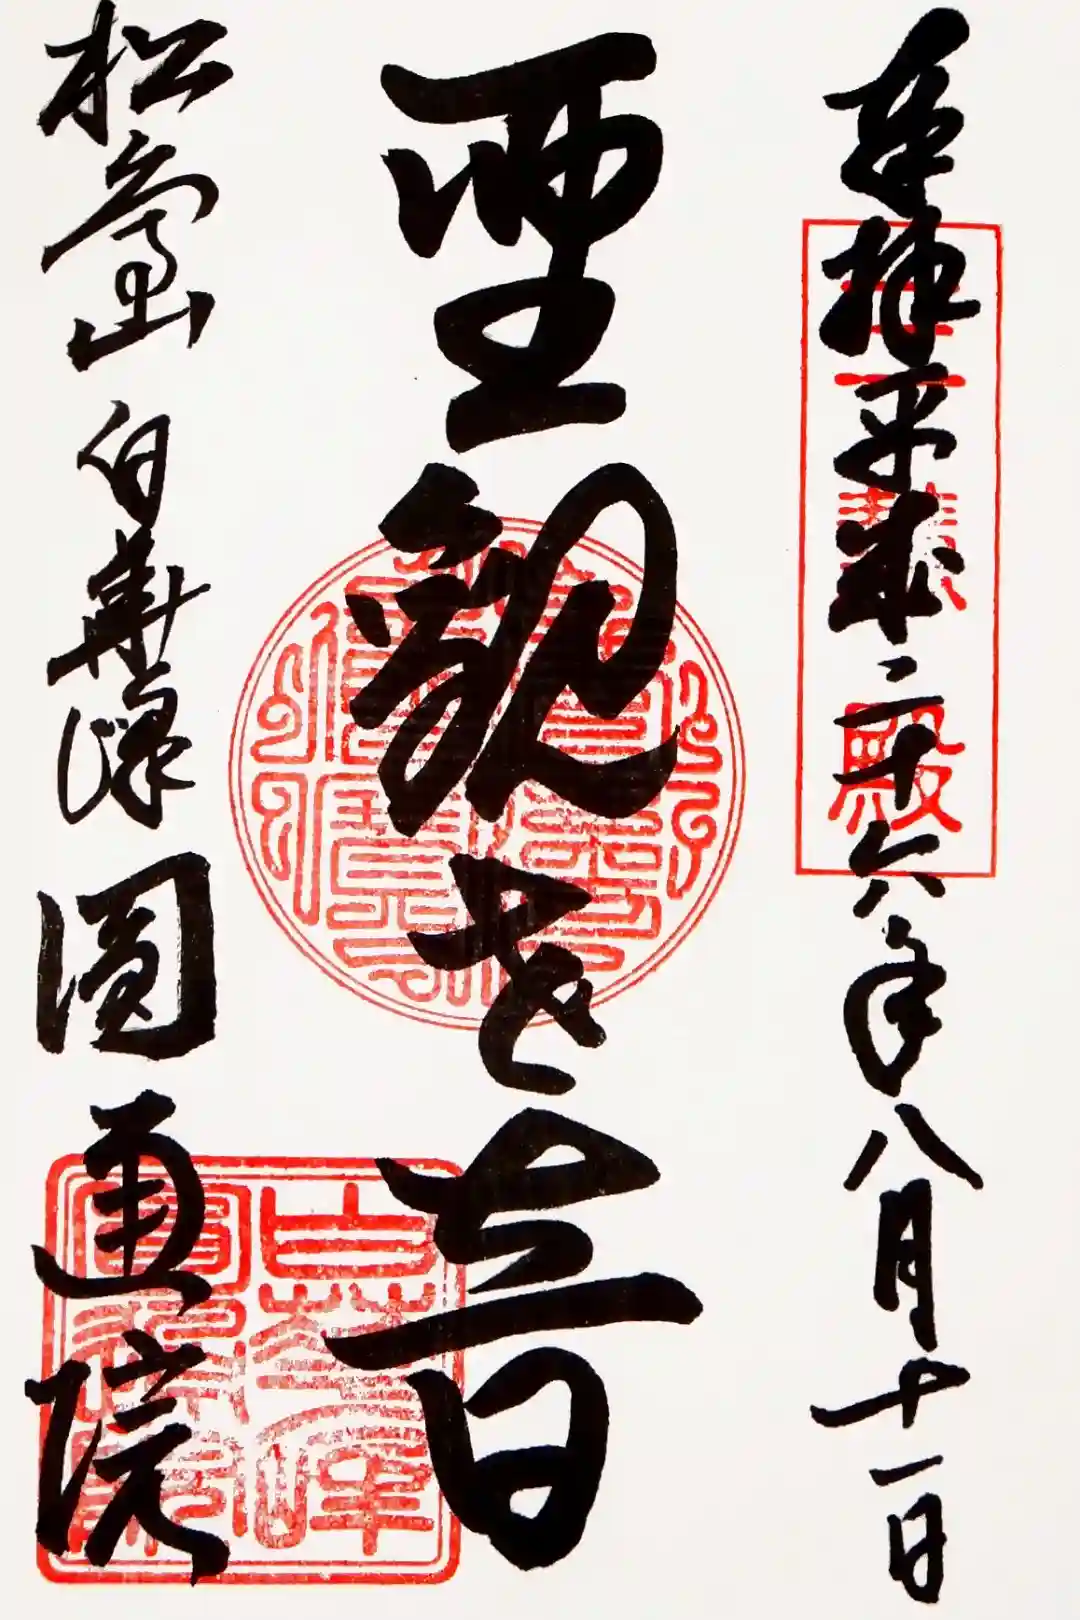 奉拝 平成二十六年八月十一日
三慧殿
聖観世音
松島山 白華峰 圓通院